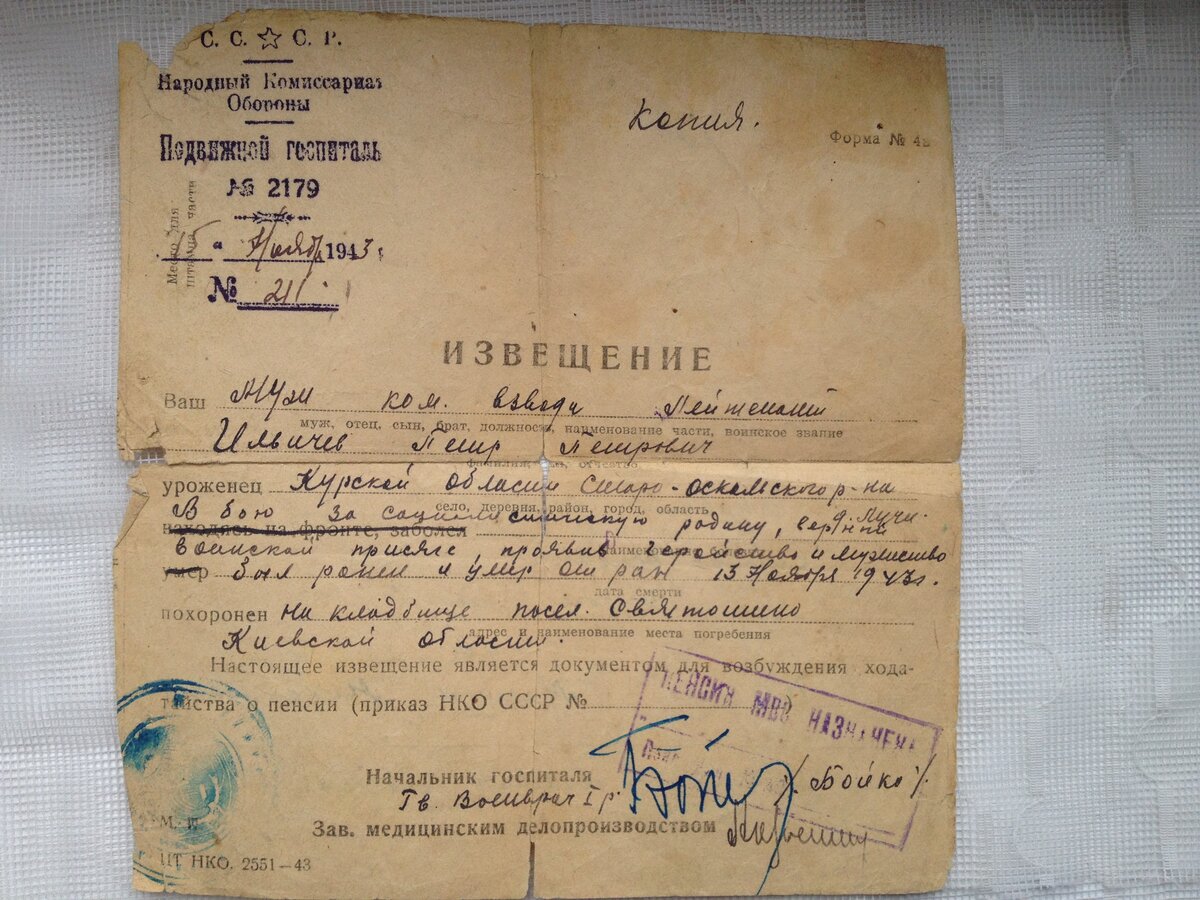 С. С. ☆ С. Р.
Народный Комиссариат
Обороны
Подвижной госпиталь
№ 2179
Место для
штампа части
"15" Ноября 1943 г.
№ 211
Копия.
Форма № 4а
ИЗВЕЩЕНИЕ
Ваш муж ком. взвода лейтенант
муж, отец, сын, брат, должность, наименование части, воинское звание
Ильичев Петр Петрович
фамилия, имя, отчество
уроженец Курской области Старо-Оскольского р-на
село, деревня, район, город, область
В бою за социалистическую родину, верный
находясь на фронте, заболел
воинской присяге, проявив геройство и мужество
наименование болезни
умер был ранен и умер от ран 13 Ноября 1943 г.
дата смерти
похоронен на кладбище посел. Святошино
Киевской области.
адрес и наименование места погребения
Настоящее извещение является документом для возбуждения хода-
тайства о пенсии (приказ НКО СССР № )
ПЕНСИЯ МВО НАЗНАЧЕНА
Начальник госпиталя
Гв. Военврач I р. Бойко /Бойко/
Зав. медицинским делопроизводством
М. п.
ЦТ НКО. 2551—43